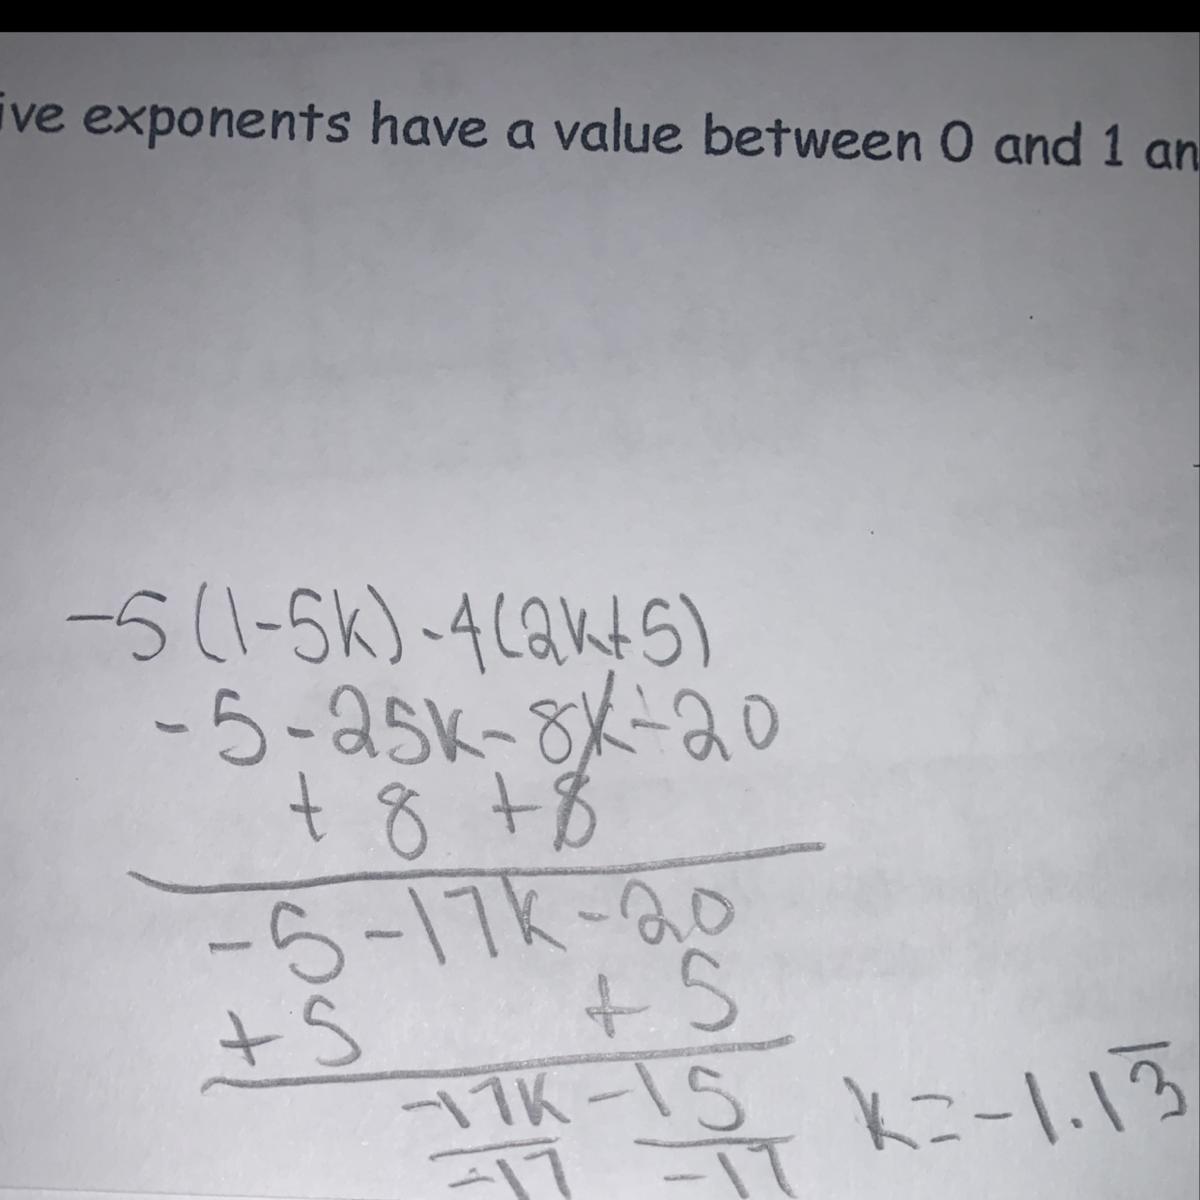 ive exponents have a value between 0 and 1 an
-5(1-5k)-4(2k+5)
-5-25k-8k-20
+ 8 +8
-5-17k-20
+5 +5
-17k -15 k=-1.13̅
-17 -17